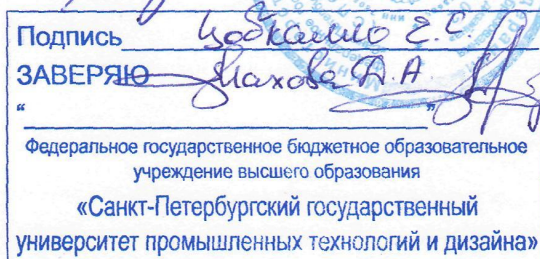 Подпись Цобкалло Е.С.
ЗАВЕРЯЮ Махова Д.А.
“ ”
Федеральное государственное бюджетное образовательное
учреждение высшего образования
«Санкт-Петербургский государственный
университет промышленных технологий и дизайна»